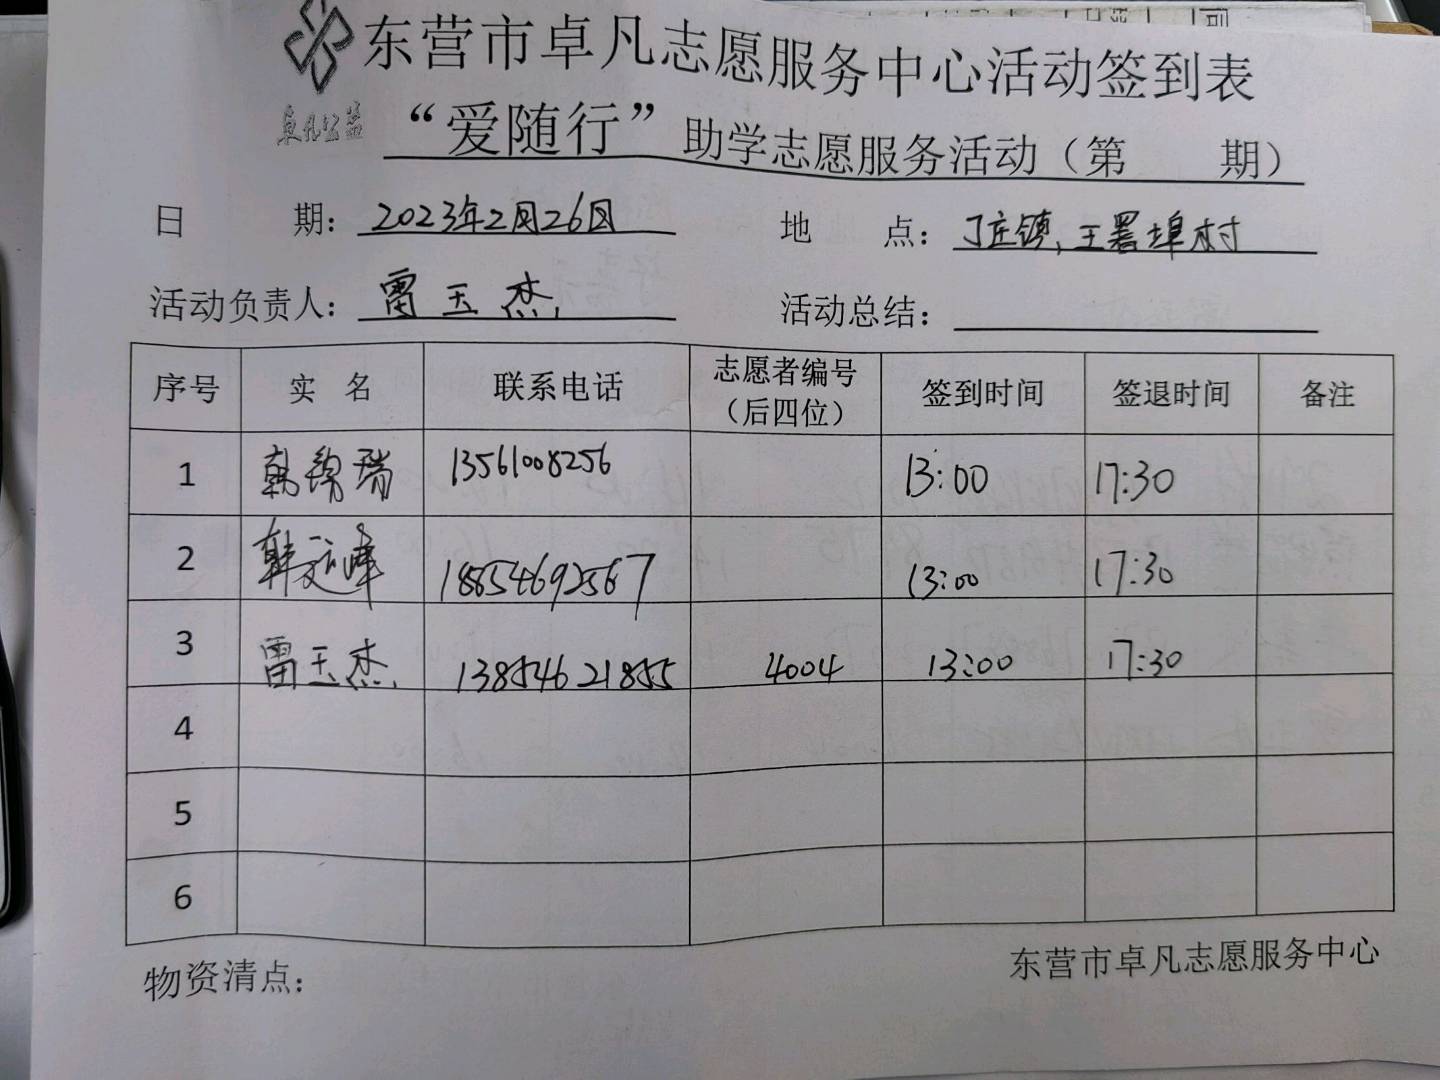 东营市卓凡志愿服务中心活动签到表
卓凡公益
“爱随行”助学志愿服务活动（第 期）
日 期：2023年2月26日 地 点：丁庄镇，王署埠村
活动负责人：雷玉杰 活动总结：
序号 实 名 联系电话 志愿者编号（后四位） 签到时间 签退时间 备注
1 韩锦瑞 13561008256 13:00 17:30
2 韩 峰 18854692567 13:00 17:30
3 雷玉杰 13854621855 4004 13:00 17:30
4
5
6
物资清点：
东营市卓凡志愿服务中心